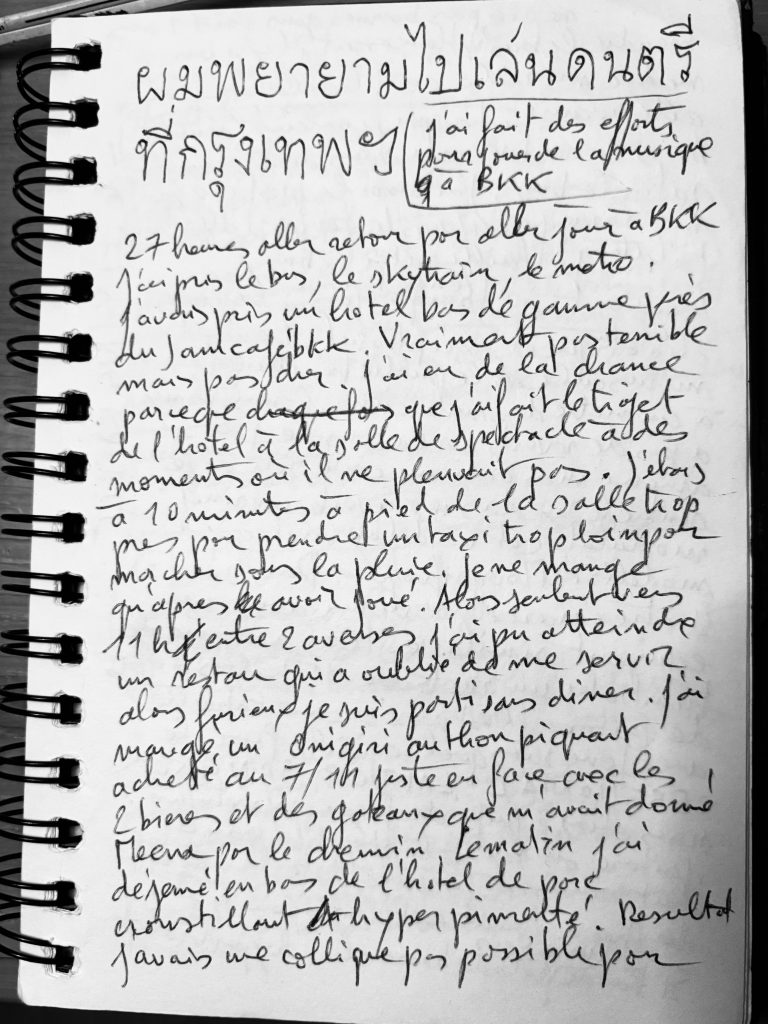 ผมพยายามไปเล่นดนตรี
ที่กรุงเทพฯ
(j'ai fait des efforts
pour jouer de la musique
à BKK
27 heures aller retour por aller jour à BKK
J'ai pris le bus, le skytrain, le metro.
J'avais pris un hotel bas de gamme près
du Jamcafébkk. Vraiment pas terrible
mais pas cher. J'ai eu de la chance
parceque que j'ai fait le trajet
de l'hôtel à la salle de spectacle à des
moments où il ne pleuvait pas. J'étais
à 10 minutes à pied de la salle trop
pres por prendre un taxi trop loin por
marcher sous la pluie. Je ne mange
qu'après avoir joué. Alors seulement vers
11h entre 2 averses j'ai pu atteindre
un restau qui a oublié de me servir
alors furieux je suis parti sans diner. J'ai
mangé un onigiri au thon piquant
acheté au 7/11 juste en face avec les
2 bieres et des gateaux que m'avait donné
Meena por le chemin. Le matin j'ai
déjeuné en bas de l'hotel de porc
croustillant hyper pimenté. Resultat
J'avais une collique pas possible pour